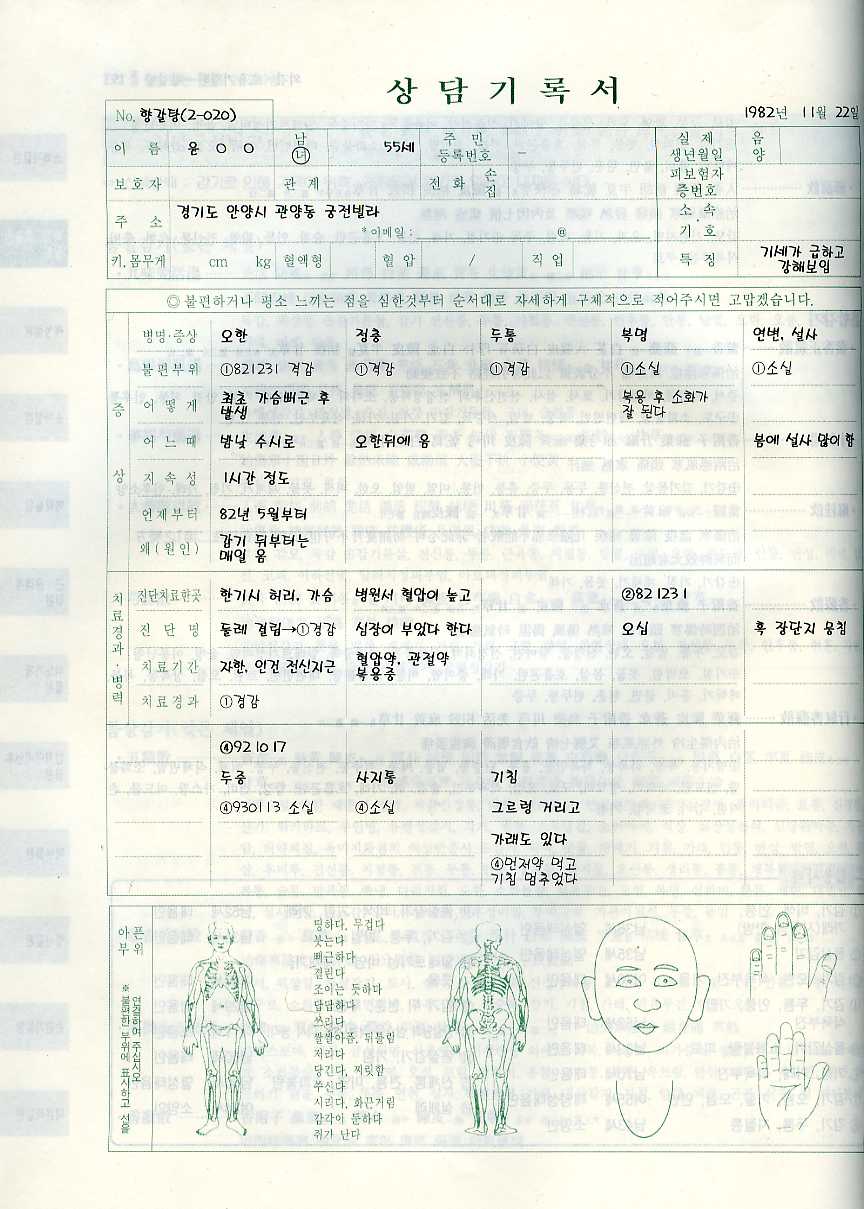 상 담 기 록 서
No. 향갈탕(2-020)
1982년 11월 22일
이 름 윤 ○ ○ 남 녀 55세 주 민 등록번호 – 실 제 생년월일 음 양
보 호 자 관 계 전 화 손 집 피보험자 증번호
주 소 경기도 안양시 관양동 궁전빌라 소 속
*이메일 : @ 기 호
키. 몸무게 cm kg 혈액형 혈 압 / 직 업 특 징 기세가 급하고 강해보임
◎ 불편하거나 평소 느끼는 점을 심한것부터 순서대로 자세하게 구체적으로 적어주시면 고맙겠습니다.
증 상
병명·증상 오한 정충 두통 복명 연변, 설사
불편부위 ①821231 격감 ①격감 ①격감 ①소실 ①소실
어 떻 게 최초 가슴뻐근 후 발생 복용 후 소화가 잘 된다
어 느 때 밤낮 수시로 오한뒤에 옴 봄에 설사 많이 함
지 속 성 1시간 정도
언제부터 82년 5월부터
왜(원인) 감기 뒤부터는 매일 옴
치료경과·병력
진단치료한곳 한기시 허리, 가슴 병원서 혈압이 높고 ②821231
진 단 명 둘레 결림→①경감 심장이 부었다 한다 오심 혹 장단지 뭉침
치료기간 자한, 인건 전신지근 혈압약, 관절약 복용중
치료경과 ①경감
④921017
두중 사지통 기침
④930113 소실 ④소실 그르렁 거리고
가래도 있다
④먼저약 먹고 기침 멈추었다
아픈 부위
※ 불편한 부위에 표시하고 선을 연결하여 주십시오
띵하다, 무겁다
붓는다
뻐근하다
결린다
조이는 듯하다
답답하다
쓰리다
쌀쌀아픔, 뒤틀림
저리다
당긴다, 찌릿함
쑤신다
시리다, 화끈거림
감각이 둔하다
쥐가 난다